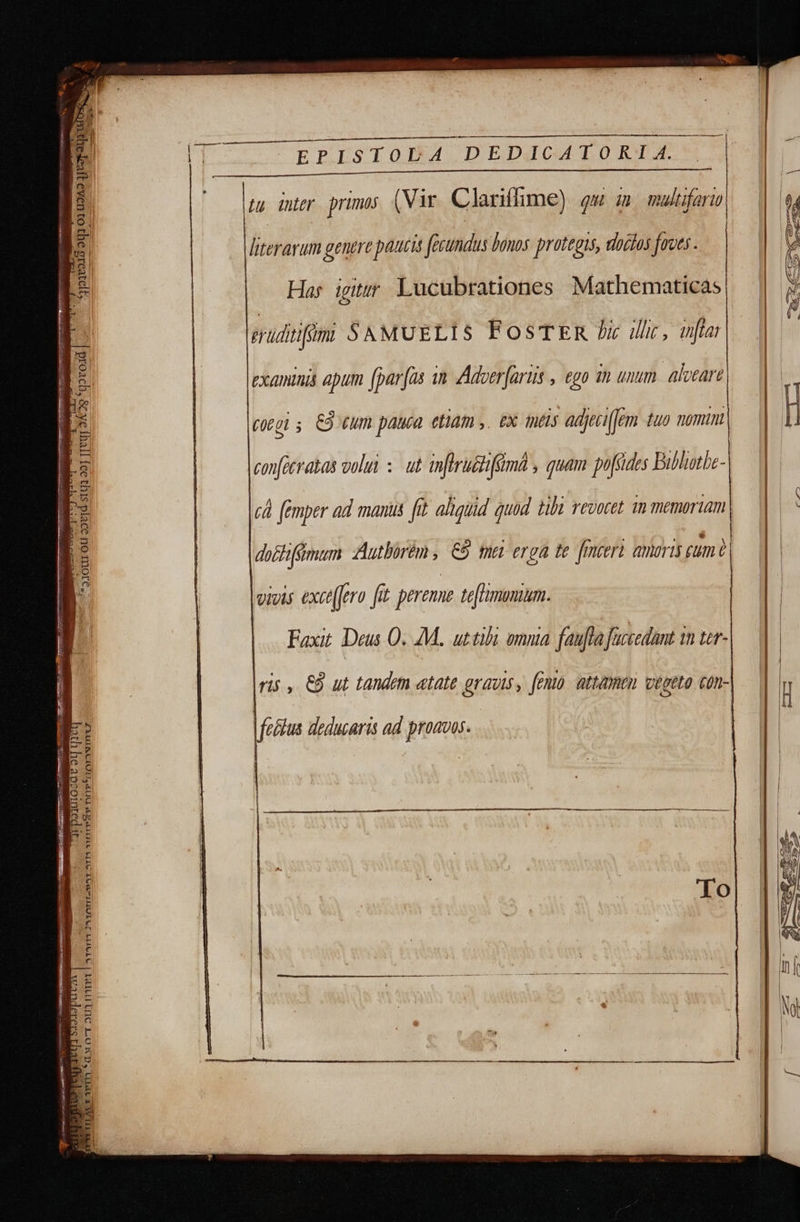 EPISTOLA DEDICATORIA.
tu inter primos (Vir Clarissime) qui in multifario
literarum genere paucis secundus bonos protegis, doctos foves.
Has igitur Lucubrationes Mathematicas
eruditissimi SAMUELIS FOSTER hic illic, instar
examinis apum sparsas in Adversariis, ego in unum alveare
coegi; & cum pauca etiam, ex meis adjecissem tuo nomini
consecratas volui: ut instructissimâ, quam possides Bibliothe-
câ semper ad manus sit aliquid quod tibi revocet in memoriam
doctissimum Authorem, & mei erga te sinceri amoris cum è
vivis excessero sit perenne testimonium.
Faxit Deus O. M. ut tibi omnia fausta succedant in ter-
ris, & ut tandem ætate gravis, senio attamen vegeto con-
fectus deducaris ad proavos.
To
from the least even to the greatest,
proach, & ye shall see this place no more.
hath he appointed it.